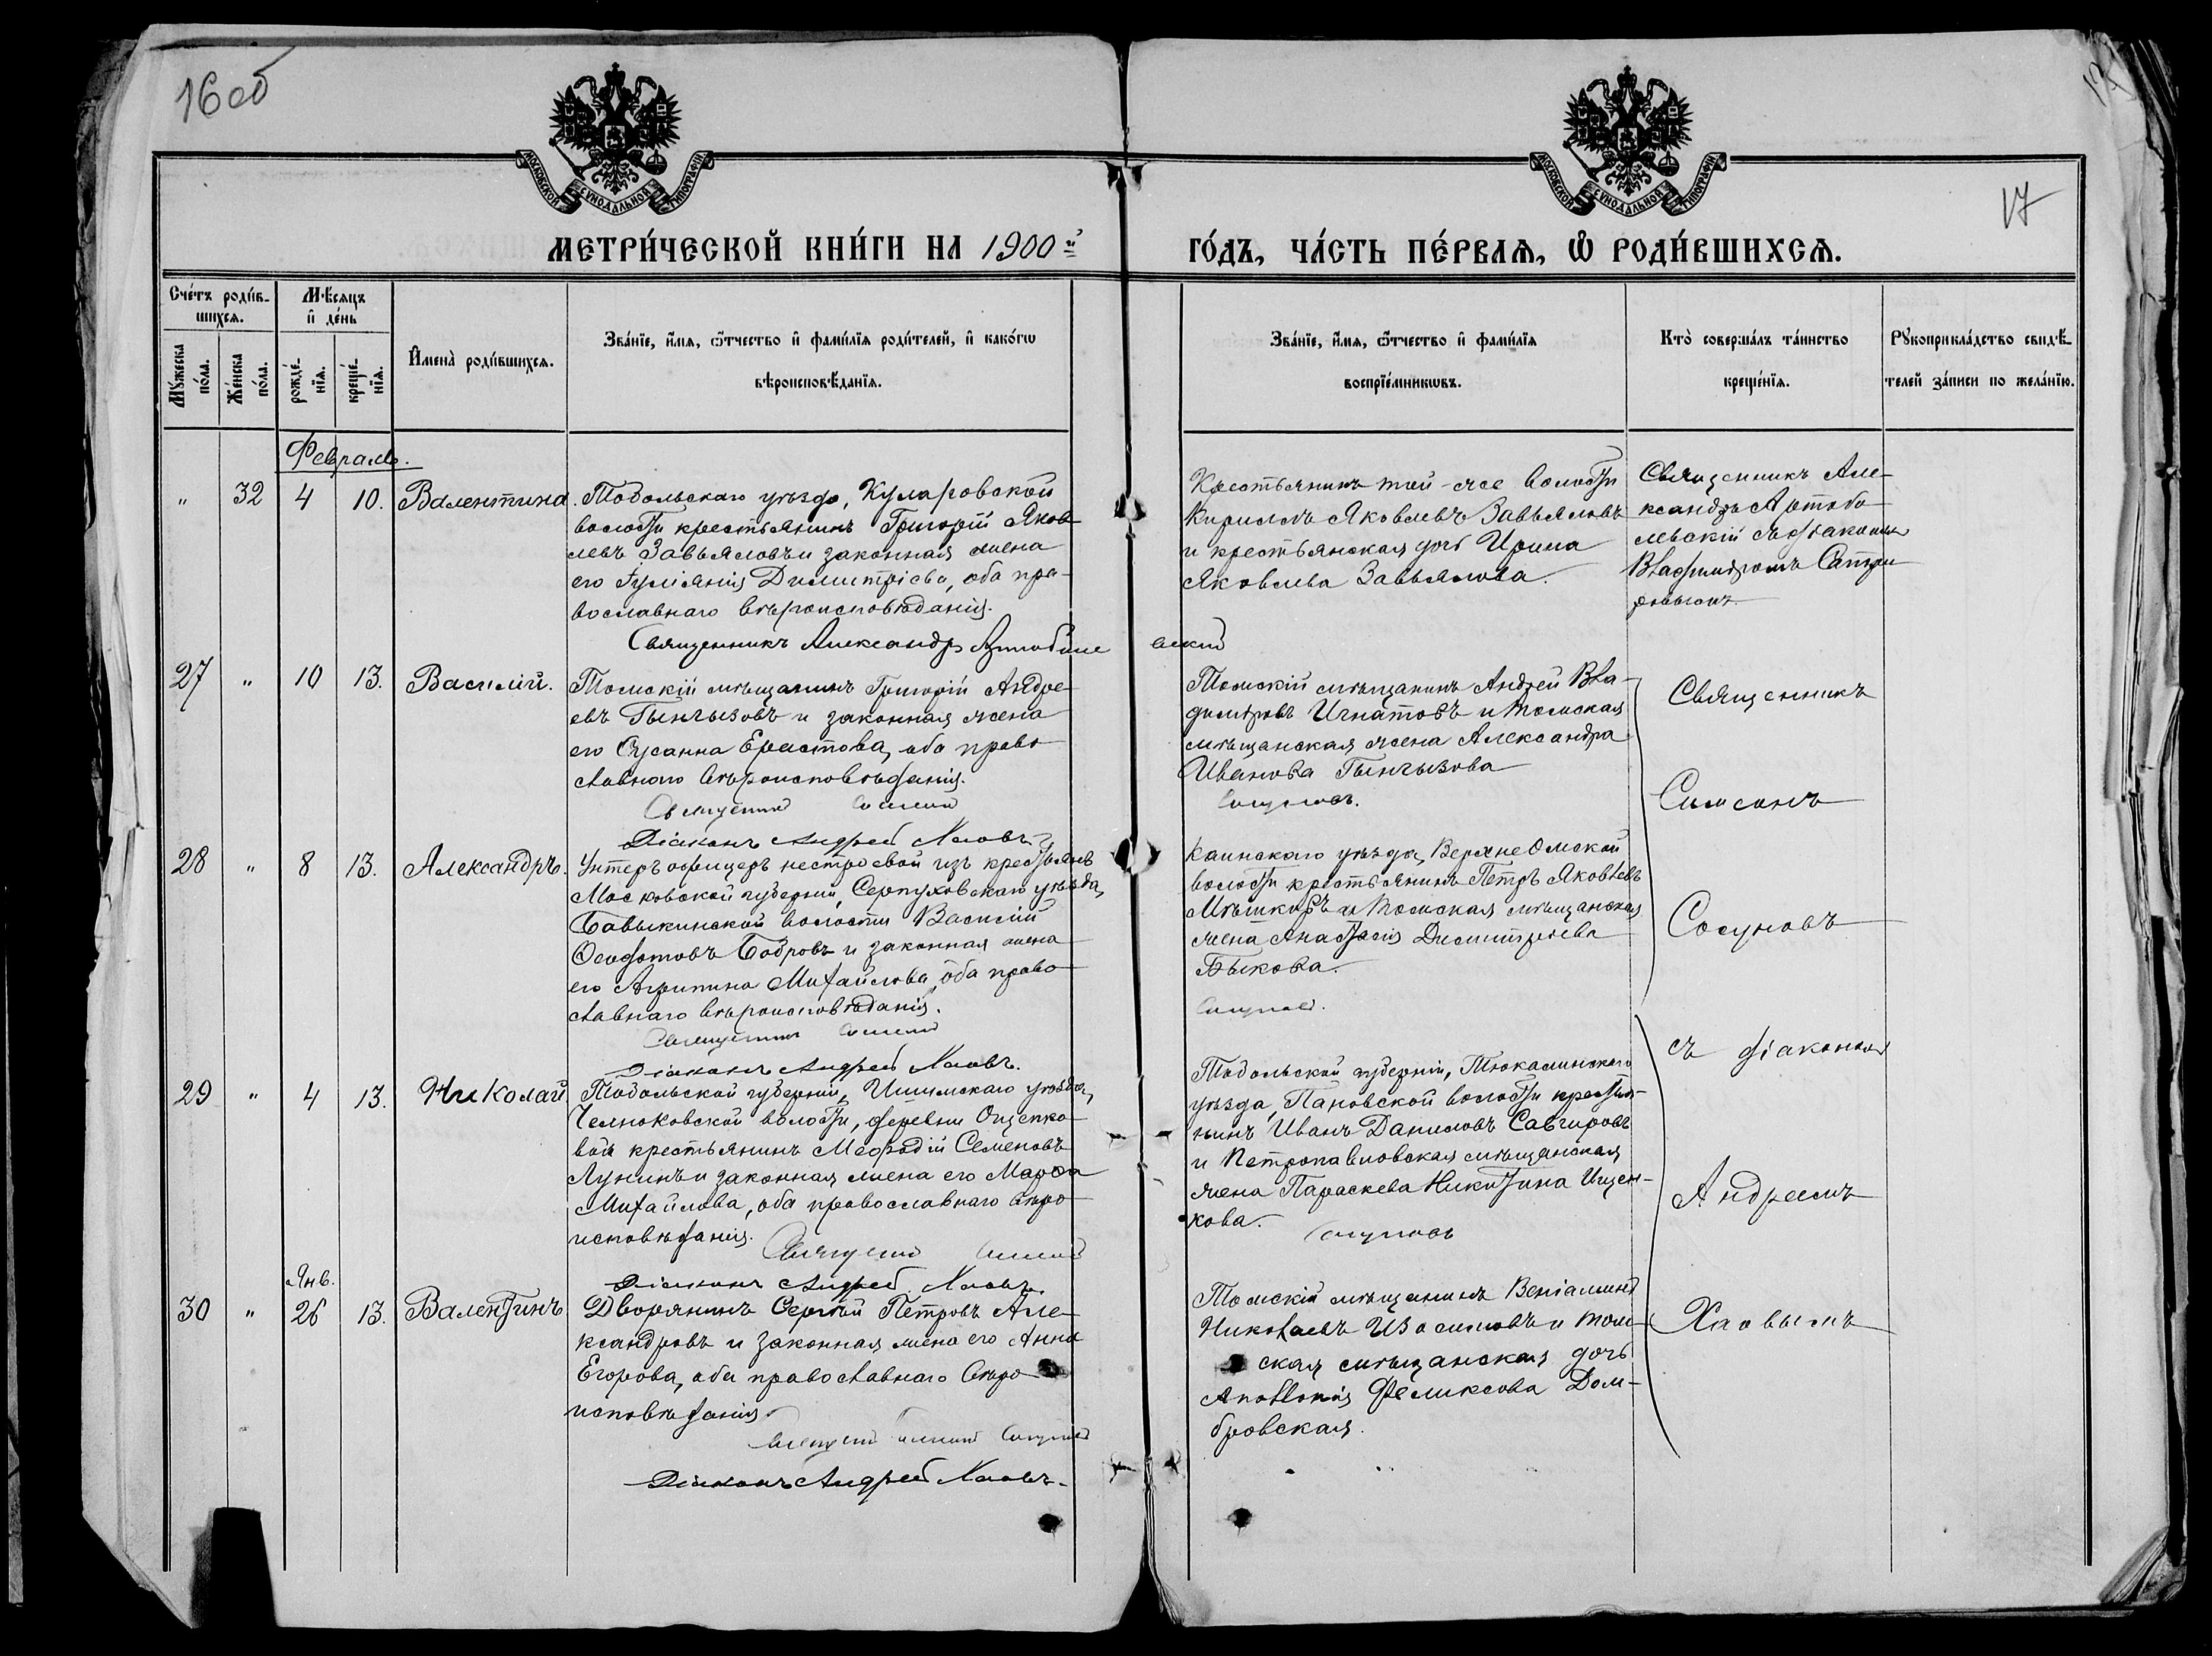 16 об
17
МОСКОВСКОЙ СѴНОДАЛЬНОЙ ТИПОГРАФІИ
МОСКОВСКОЙ СѴНОДАЛЬНОЙ ТИПОГРАФІИ
17
МЕТРИ́ЧЕСКОЙ КНИ́ГИ НА 1900й
ГО́ДЪ, ЧА́СТЬ ПЕ́РВАЯ, Ѡ҆ РОДИ́ВШИХСЯ.
Сче́тъ роди́в-
шихся.
Мѣ́сяцъ
и҆ де́нь
Му́жеска
по́ла.
Же́нска
по́ла.
рожде́-
нїя.
креще́-
нїя.
И҆мена̀ роди́вшихся.
Зва́нїе, и҆́мя, ѻ҆́тчество и҆ фами́лїя роди́телей, и҆ како́гѡ
вѣроисповѣ́данїя.
Зва́нїе, и҆́мя, ѻ҆́тчество и҆ фами́лїя
воспрїе́мникѡвъ.
Кто̀ соверша́лъ та́инство
креще́нїя.
Рукоприкла́дство свидѣ́-
телей за́писи по жела́нїю.
Февраль.
" 32 4 10. Валентина.
Тобольскаго уѣзда, Куларовской
волости крестьянинъ Григорій Яков-
левъ Завьяловъ и законная жена
его Іуліанія Димитріева, оба пра-
вославнаго вѣроисповѣданія.
Священникъ Александръ
Крестьянинъ той-же волости
Кириллъ Яковлевъ Завьяловъ
и крестьянская дочь Ирина
Яковлева Завьялова.
Священникъ Але-
ксандръ Артобо-
левскій съ діакономъ
Владиміромъ
27 " 10 13. Василій.
Томскій мѣщанинъ Григорій Андре-
евъ Гынгызовъ и законная жена
его Сусанна Ерастова, оба право-
славнаго вѣроисповѣданія.
Діаконъ Андрей Хаовъ
Томскій мѣщанинъ Андрей Вла-
диміровъ Игнатовъ и томская
мѣщанская жена Александра
Иванова Гынгызова
Сосуновъ.
Священникъ
Симеонъ
28 " 8 13. Александръ.
Унтеръ офицеръ нестроевой изъ крестьянъ
Московской губерніи, Серпуховскаго уѣзда,
Бавыкинской волости Василій
Ѳеодотовъ Бобровъ и законная жена
его Агрипина Михайлова, оба право-
славнаго вѣроисповѣданія.
Діаконъ Андрей Хаовъ.
Каинскаго уѣзда, Верхне Омской
волости крестьянинъ Петръ Яковлевъ
и Томская мѣщанская
жена Анастасія Димитріева
Быкова.
Сосуновъ.
Сосуновъ
съ діакономъ
29 " 4 13. Николай
Тобольской губерніи, Ишимскаго уѣзда,
Челноковской волости, деревни Ощепко-
вой крестьянинъ Меѳодій Семеновъ
Лунинъ и законная жена его Марѳа
Михайлова, оба православнаго вѣро-
исповѣданія.
Діаконъ Андрей Хаовъ.
Тобольской губерніи, Тюкалинскаго
уѣзда, Пановской волости крестья-
нинъ Иванъ Даниловъ
и Петропавловская мѣщанская
жена Параскева Никитина Ищен-
кова.
Сосуновъ
Андреемъ
Янв.
30 " 26 13. Валентинъ
Дворянинъ Сергѣй Петровъ Але-
ксандровъ и законная жена его Анна
Егорова, оба православнаго вѣро-
исповѣданія.
Діаконъ Андрей Хаовъ.
Томскій мѣщанинъ Веніаминъ
Николаевъ Изосимовъ и том-
ская мѣщанская дочь
Аполлонія Феликсова Дом-
бровская.
Хаовымъ